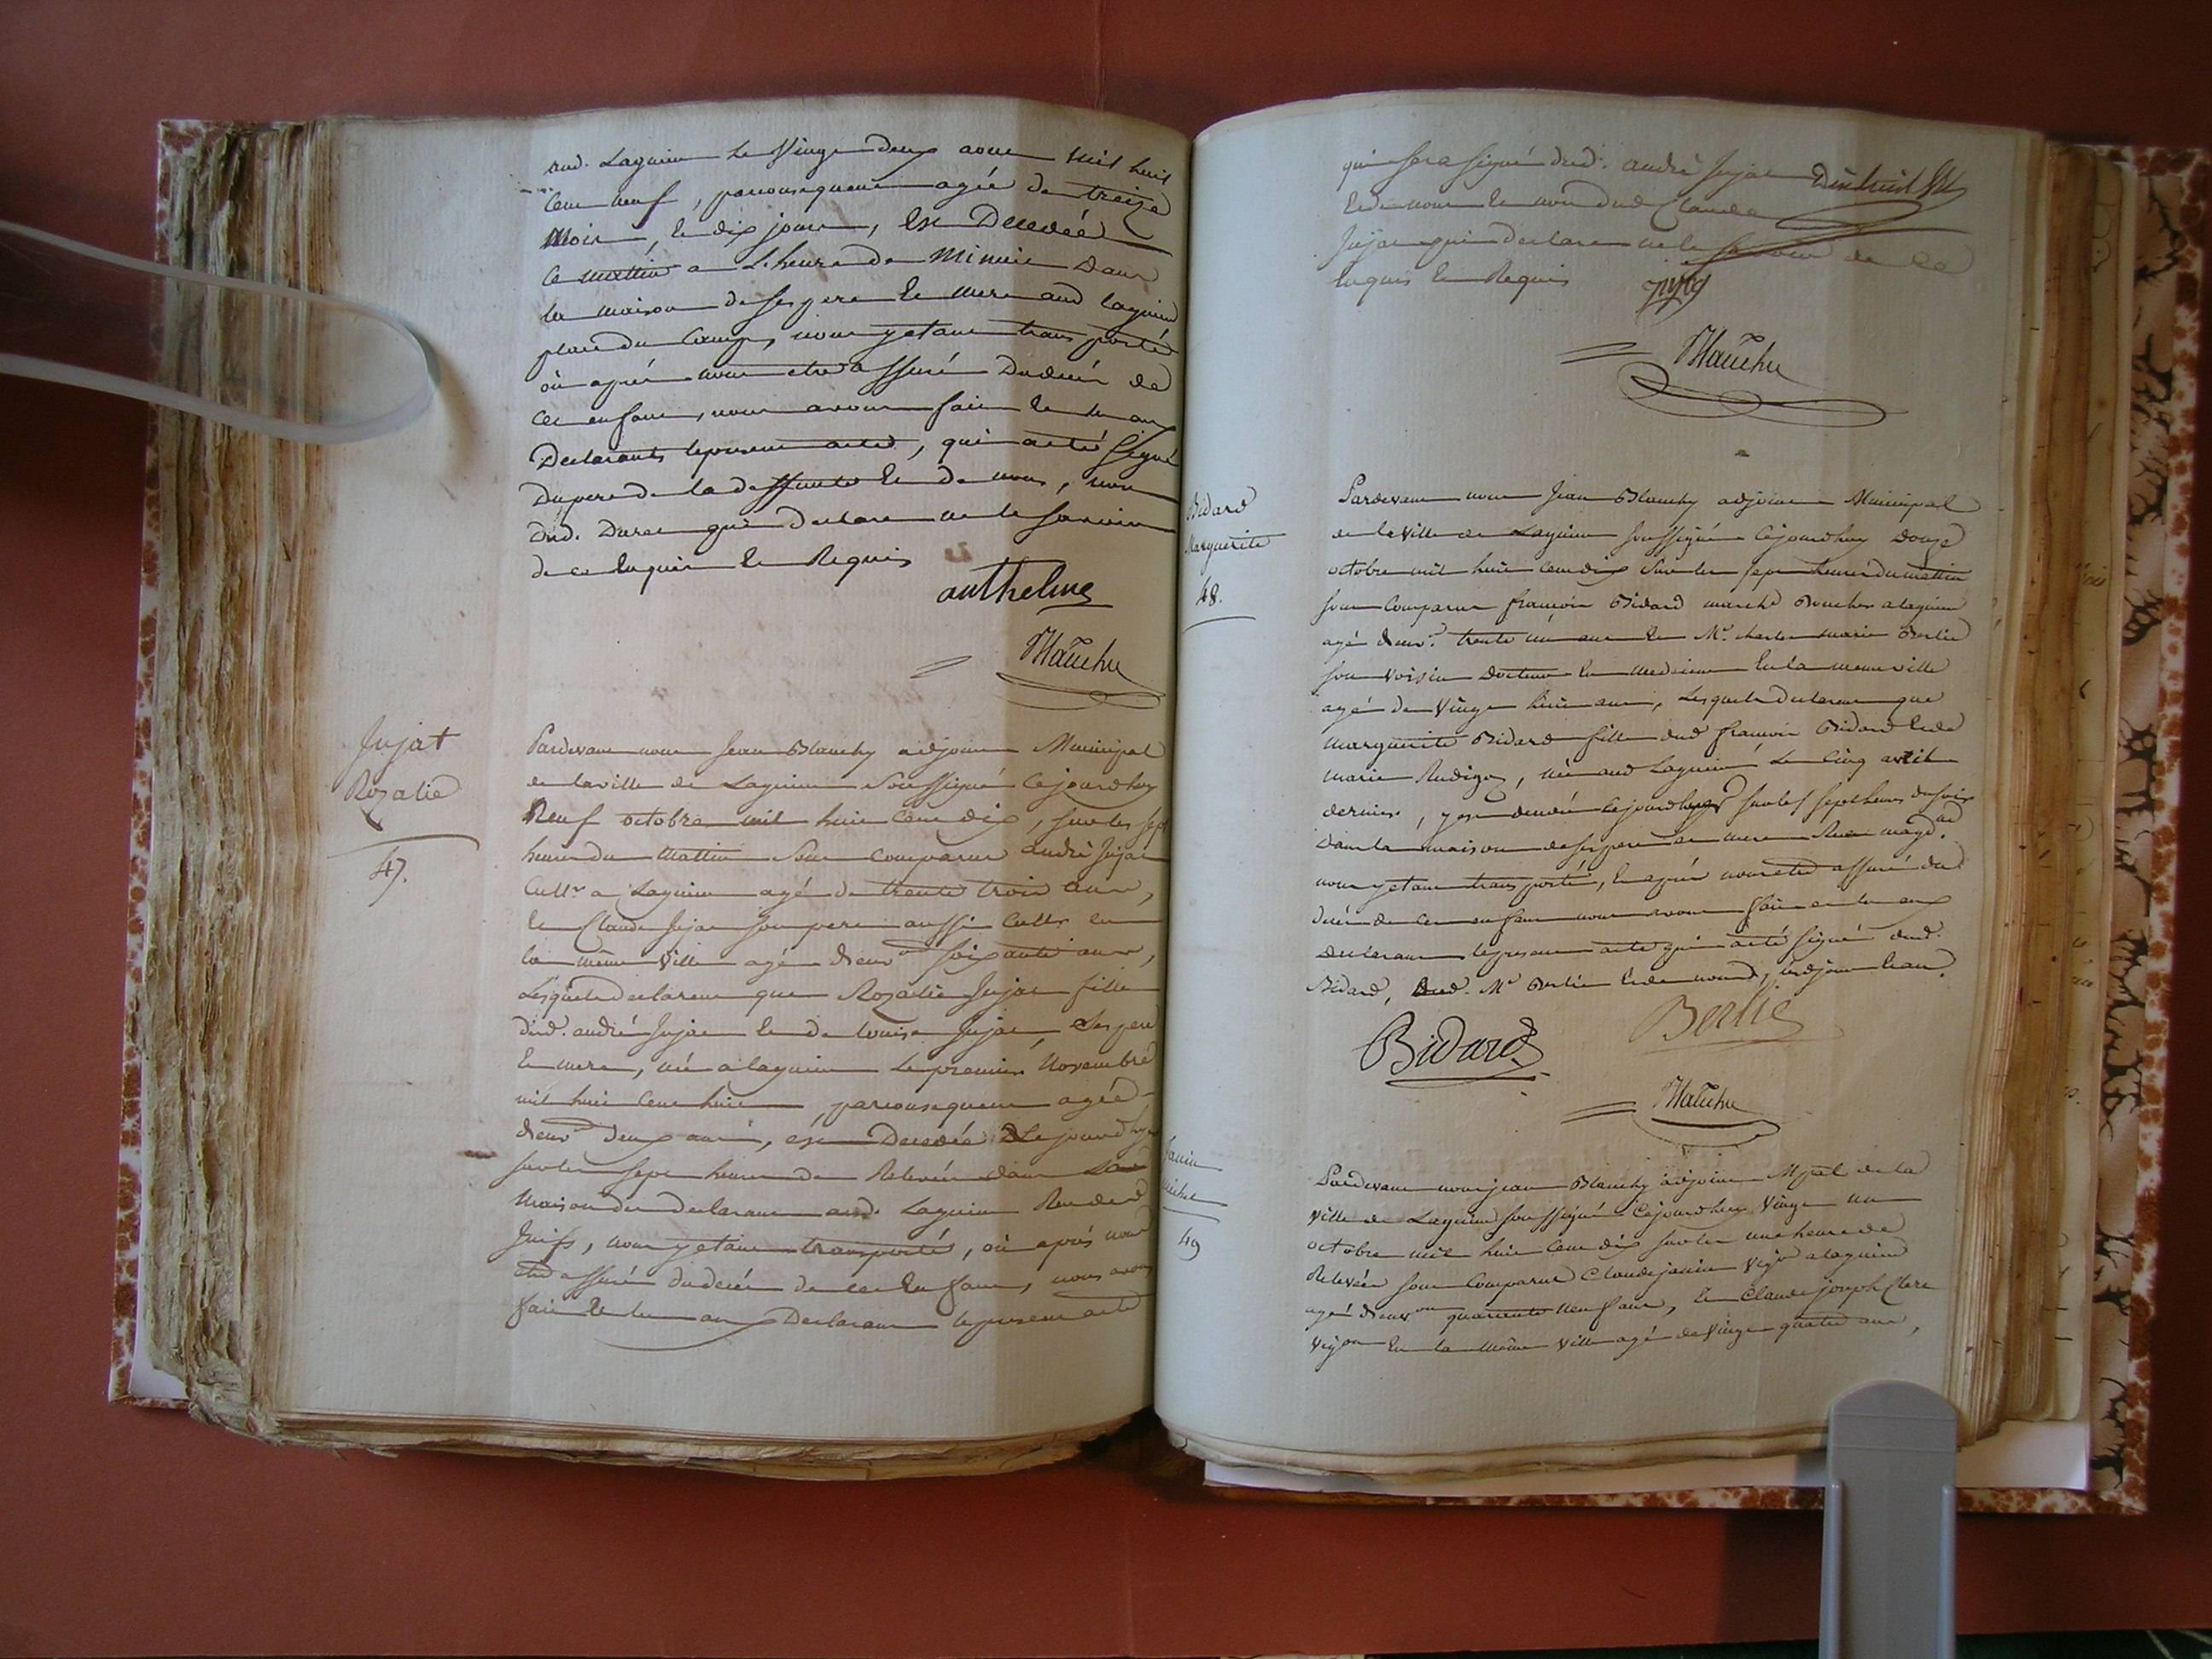 aud. Lagnieu le Vingt deux aout mil huit
Cent neuf, par consequent agée de treize
Mois, et dix jours, est Decedée
Ce mattin a L'heure de Minuit Dans
la maison de ses pere et mere aud lagnieu
place du Camp, nous y etant transporté
où aprés nous etre assuré Du decés de
cet enfant, nous avons fait et lu aux
Declarants le present acte, qui a eté Signé
Du pere de la deffunte et de nous, non
dud. Durec qui a Declaré ne le savoir
de ce Enquis et Requis
anthelme
Blanchy
Jujat
Rozalie
47.
Pardevant nous Jean Blanchy adjoint Municipal
de la ville de Lagnieu Soussigné Cejourdhuy
Neuf octobre mil huit Cent dix, sur les sept
heures du Mattin Sont comparus andré Jujat
Cultr. a Lagnieu agé de trente trois ans,
et Claude Jujat son pere aussi Cultr. en
la même Ville agé d'envon soixante ans,
Lesquels declarent que Rozalie Jujat fille
dud. andré Jujat et de Louise Jujat, Ses pere
et mere, née a lagnieu Le premier Novembre
mil huit Cent huit, par consequent agée
d'envon deux ans, est Decedée Cejourdhuy
sur les sept heures de Relevée dans La
Maison du declarant aud. Lagnieu Rue des
Juifs, nous y etant transporté, où aprés nous
etre assuré du decés de cet Enfant, nous avons
fait et lu aux Declarants le present acte
qui sera signé dud. andré Jujat
et de nous et non dud Claude
Jujat qui declare ne le Savoir de ce
Enquis et Requis
Jujat
Blanchy
Bidard
Marguerite
48.
Pardevant nous Jean Blanchy adjoint Municipal
de la Ville de Lagnieu soussigné Cejourdhuy Douze
octobre mil huit Cent dix Sur les sept heures du mattin
sont Comparus françois Bidard march.d Boucher a lagnieu
agé d'env.on trente un ans et Mr. charles marie Berlie
son voisin Docteur en medecine En la meme ville
agé de Vingt huit ans, Lesquels declarent que
Marguerite Bidard fille dud françois Bidard et de
Marie Rudigoz, née aud Lagnieu Le Cinq avril
dernier, y est decedée Cejourdhuy sur les sept heures du soir
Dans la maison de ses pere et mere
nous y etant transporté, et aprés nous etre assuré dud
decés de cet enfant nous avons fait et lu aux
declarants le present acte qui a eté signé dud.
Bidard, dud. Mr Berlie et de nous d, adjoint
Bidard
Berlie
Blanchy
Janin
49
Pardevant nous jean Blanchy adjoint Mpal de la
Ville de Lagnieu soussigné Cejourdhuy Vingt un
octobre mil huit Cent dix sur les une heure de
Relevée sont Comparus Claude janin Vign a lagnieu
agé d'envon quarente neuf ans, et Claude joseph Clerc
Vigon En la même Ville agé de Vingt quatre ans,